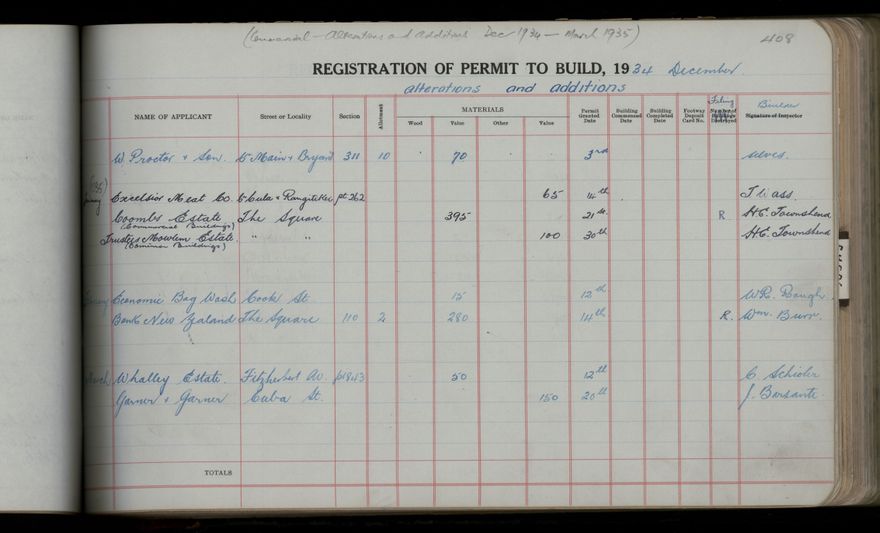 (Commercial - Alterations and Additions Dec 1934 - March 1935)
408
REGISTRATION OF PERMIT TO BUILD, 1934 December
alterations and additions
NAME OF APPLICANT Street or Locality Section Allotment MATERIALS Wood Value Other Value Permit Granted Date Building Commenced Date Building Completed Date Footway Deposit Card No. Filing Number of Buildings Destroyed Builder Signature of Inspector
W Proctor & Son. & Bryant 311 10 70 3rd
(1935)
Excelsior Meat Co. Cuba & Rangitikei pt 262 65 14th
Coombs Estate The Square 395 21st R H.E. Townshend
(Commercial Buildings)
Trustees Mowlem Estate. " " 100 30th H.E. Townshend
(Common Buildings)
Economic Bag Wash Cook St 15 12th W.R. Baugh
Bank New Zealand The Square 110 2 280 14th R. Wm. Burr.
Whalley Estate. Fitzherbert Av. 50 12th C. Schioler
Garner & Garner Cuba St. 150 20th J. Barsanti
TOTALS